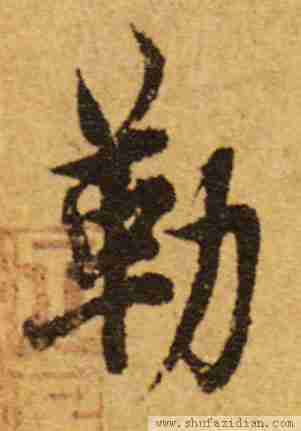 勒
www.shufazidian.com